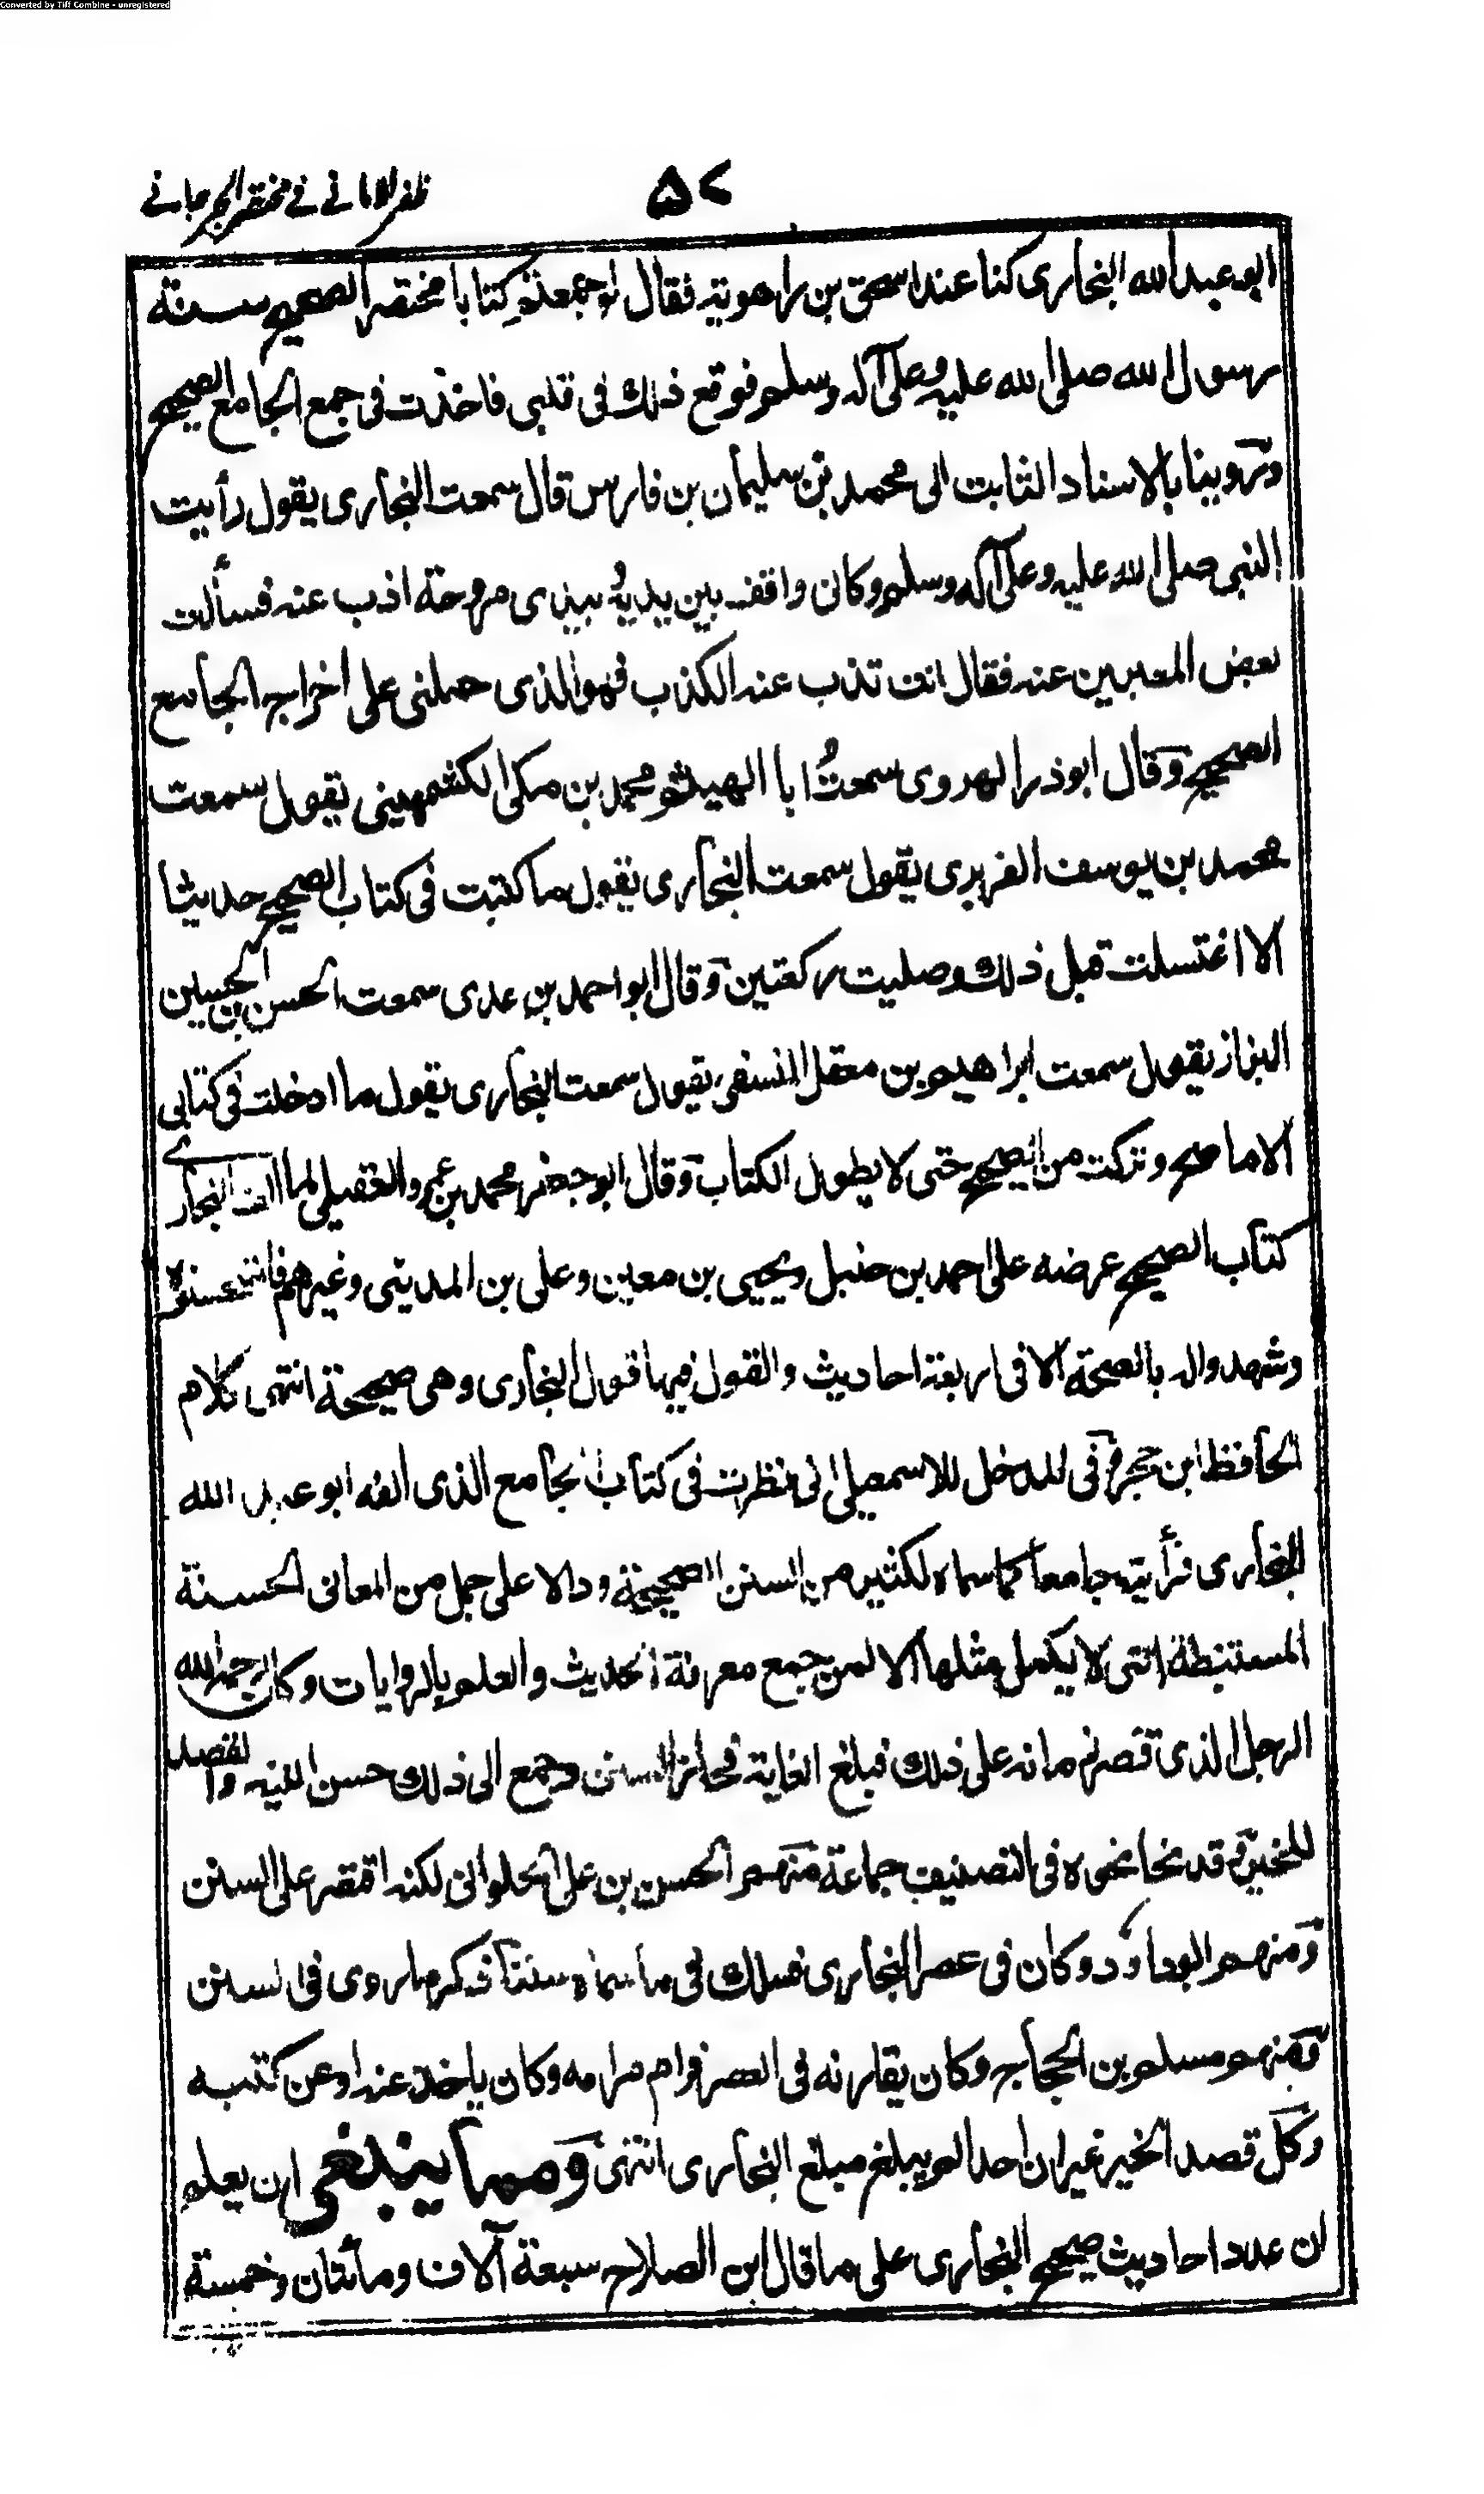 Converted by Tiff Combine - unregistered
ظفر الامانی فی مختصر الجرجانی
۵۷
ابو عبد الله البخاری کنا عند اسحق بن راهویه فقال لو جمعتم کتابا مختصرا لصحیح سنة
رسول الله صلی الله علیه وعلی آله وسلم فوقع ذلك فی قلبی فاخذت فی جمع الجامع الصحیح
وروینا بالاسناد الثابت الی محمد بن سلیمان بن فارس قال سمعت البخاری یقول رأیت
النبی صلی الله علیه وعلی آله وسلم وکانی واقف بین یدیه بیدی مروحة اذب عنه فسألت
بعض المعبرین عنه فقال انت تذب عنه الکذب فهو الذی حملنی علی اخراج الجامع
الصحیح وقال ابو ذر الهروی سمعت ابا الهیثم محمد بن مکی الکشمهینی یقول سمعت
محمد بن یوسف الفربری یقول سمعت البخاری یقول ما کتبت فی کتاب الصحیح حدیثا
الا اغتسلت قبل ذلك وصلیت رکعتین وقال ابو احمد بن عدی سمعت الحسن بن الحسین
البزاز یقول سمعت ابراهیم بن معقل النسفی یقول سمعت البخاری یقول ما ادخلت فی کتابی
الا ما صح وترکت من الصحیح حتی لا یطول الکتاب وقال ابو جعفر محمد بن عمرو العقیلی لما الف البخاری
کتاب الصحیح عرضه علی احمد بن حنبل ویحیی بن معین وعلی بن المدینی وغیرهم فاستحسنوه
وشهدوا له بالصحة الا فی اربعة احادیث والقول فیها قول البخاری وهی صحیحة انتهی کلام
الحافظ ابن حجر وفی المدخل للاسمعیلی انی نظرت فی کتاب الجامع الذی الفه ابو عبد الله
البخاری فرأیته جامعا کما سماه لکثیر من السنن الصحیحة ودالا علی جمل من المعانی الحسنة
المستنبطة التی لا یکمل مثلها الا لمن جمع معرفة الحدیث والعلم بالروایات وکان رحمه الله
الرجل الذی قصر زمانه علی ذلك فبلغ الغایة فحاز السنن وجمع الی ذلك حسن النیه والقصد
للخیر وقد نحا نحوه فی التصنیف جماعة منهم الحسن بن علی الحلوانی لکنه اقتصر علی السنن
ومنهم ابو داؤد وکان فی عصر البخاری فسلك فی ما سماه سننا ذکر ما روی فی السنن
ومنهم مسلم بن الحجاج وکان یقارنه فی العصر فرام مرامه وکان یاخذ عنه او عن کتبه
وکل قصد الخیر غیر ان احدا لم یبلغ مبلغ البخاری انتهی ومما ینبغی ان یعلم
ان عدد احادیث صحیح البخاری علی ما قال ابن الصلاح سبعة آلاف ومائتان وخمسة